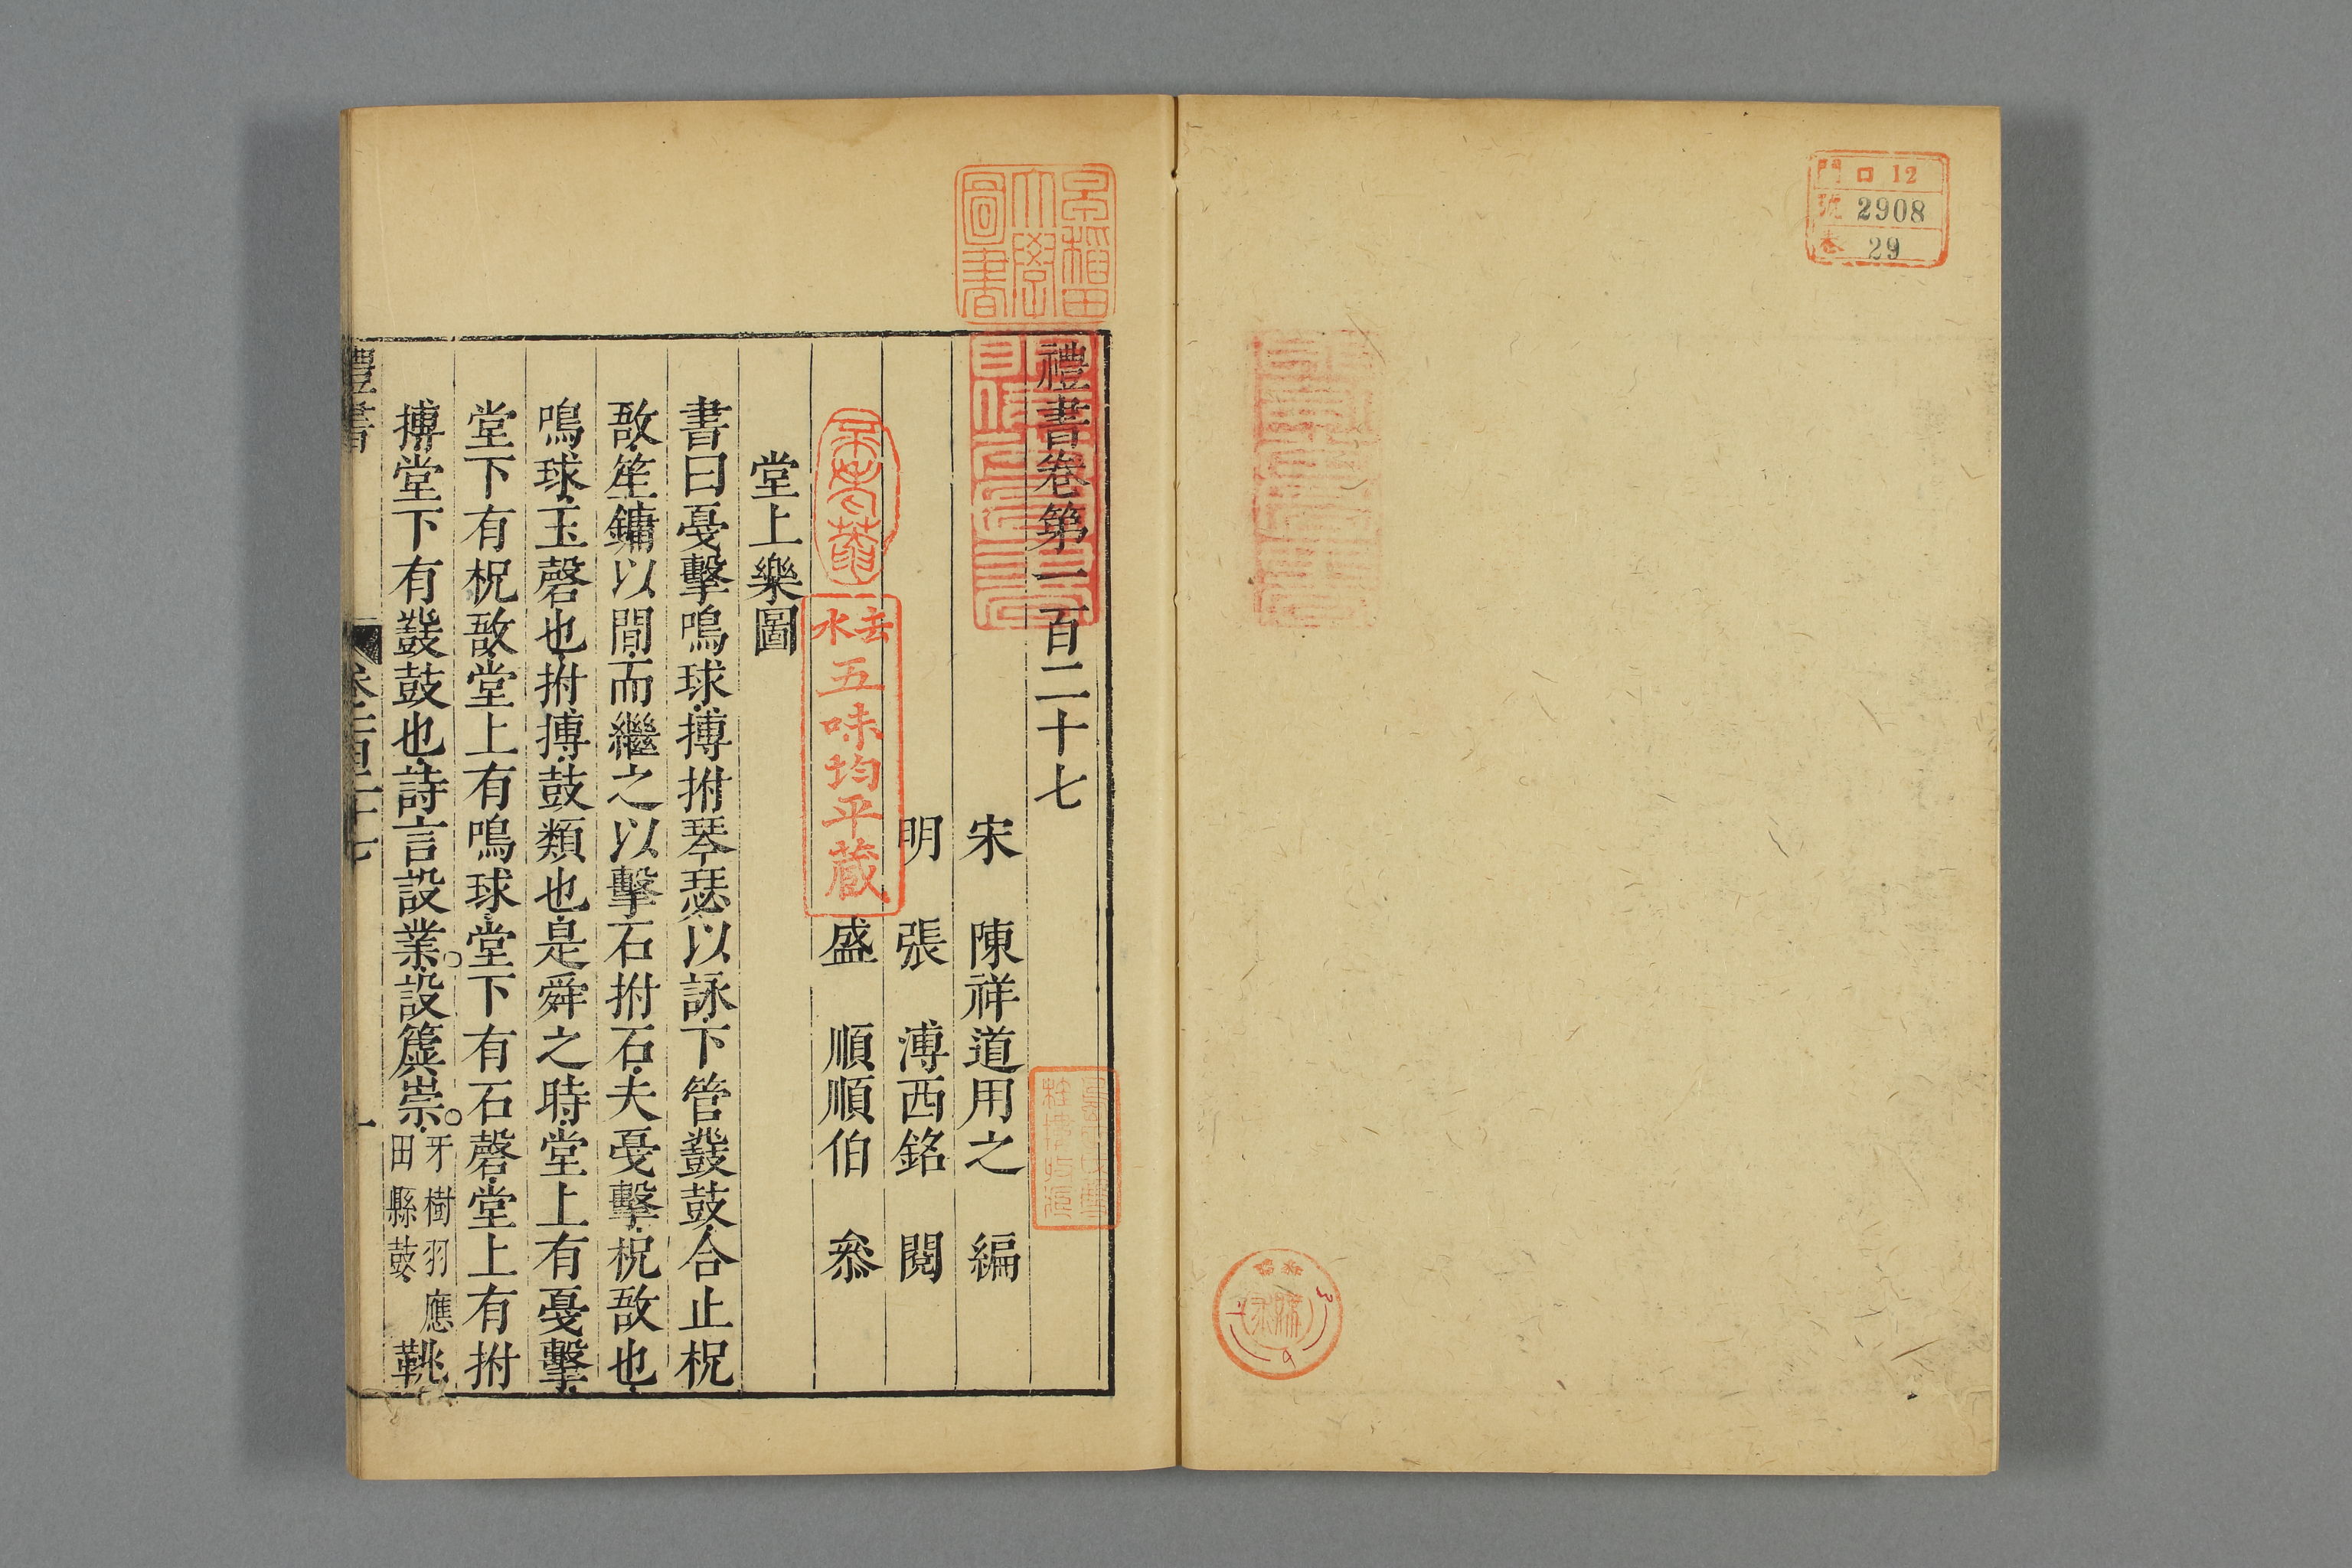 門 ロ 12
號 2908
巻 29
早稲田大學圖書
禮書卷第一百二十七
宋 陳祥道用之 編
明 張 溥西銘 閱
盛 順順伯 叅
玄水
五味均平蔵
堂上樂圖
書曰戞擊鳴球搏拊琴瑟以詠下管鼗鼓合止柷
敔笙鏞以間而繼之以擊石拊石夫戞擊柷敔也
鳴球玉磬也拊搏鼓類也是舜之時堂上有戞擊
堂下有柷敔堂上有鳴球堂下有石磬堂上有拊
搏堂下有鼗鼓也詩言設業設簴崇牙樹羽應田縣鼓鞉
禮書
卷一百二十七
一